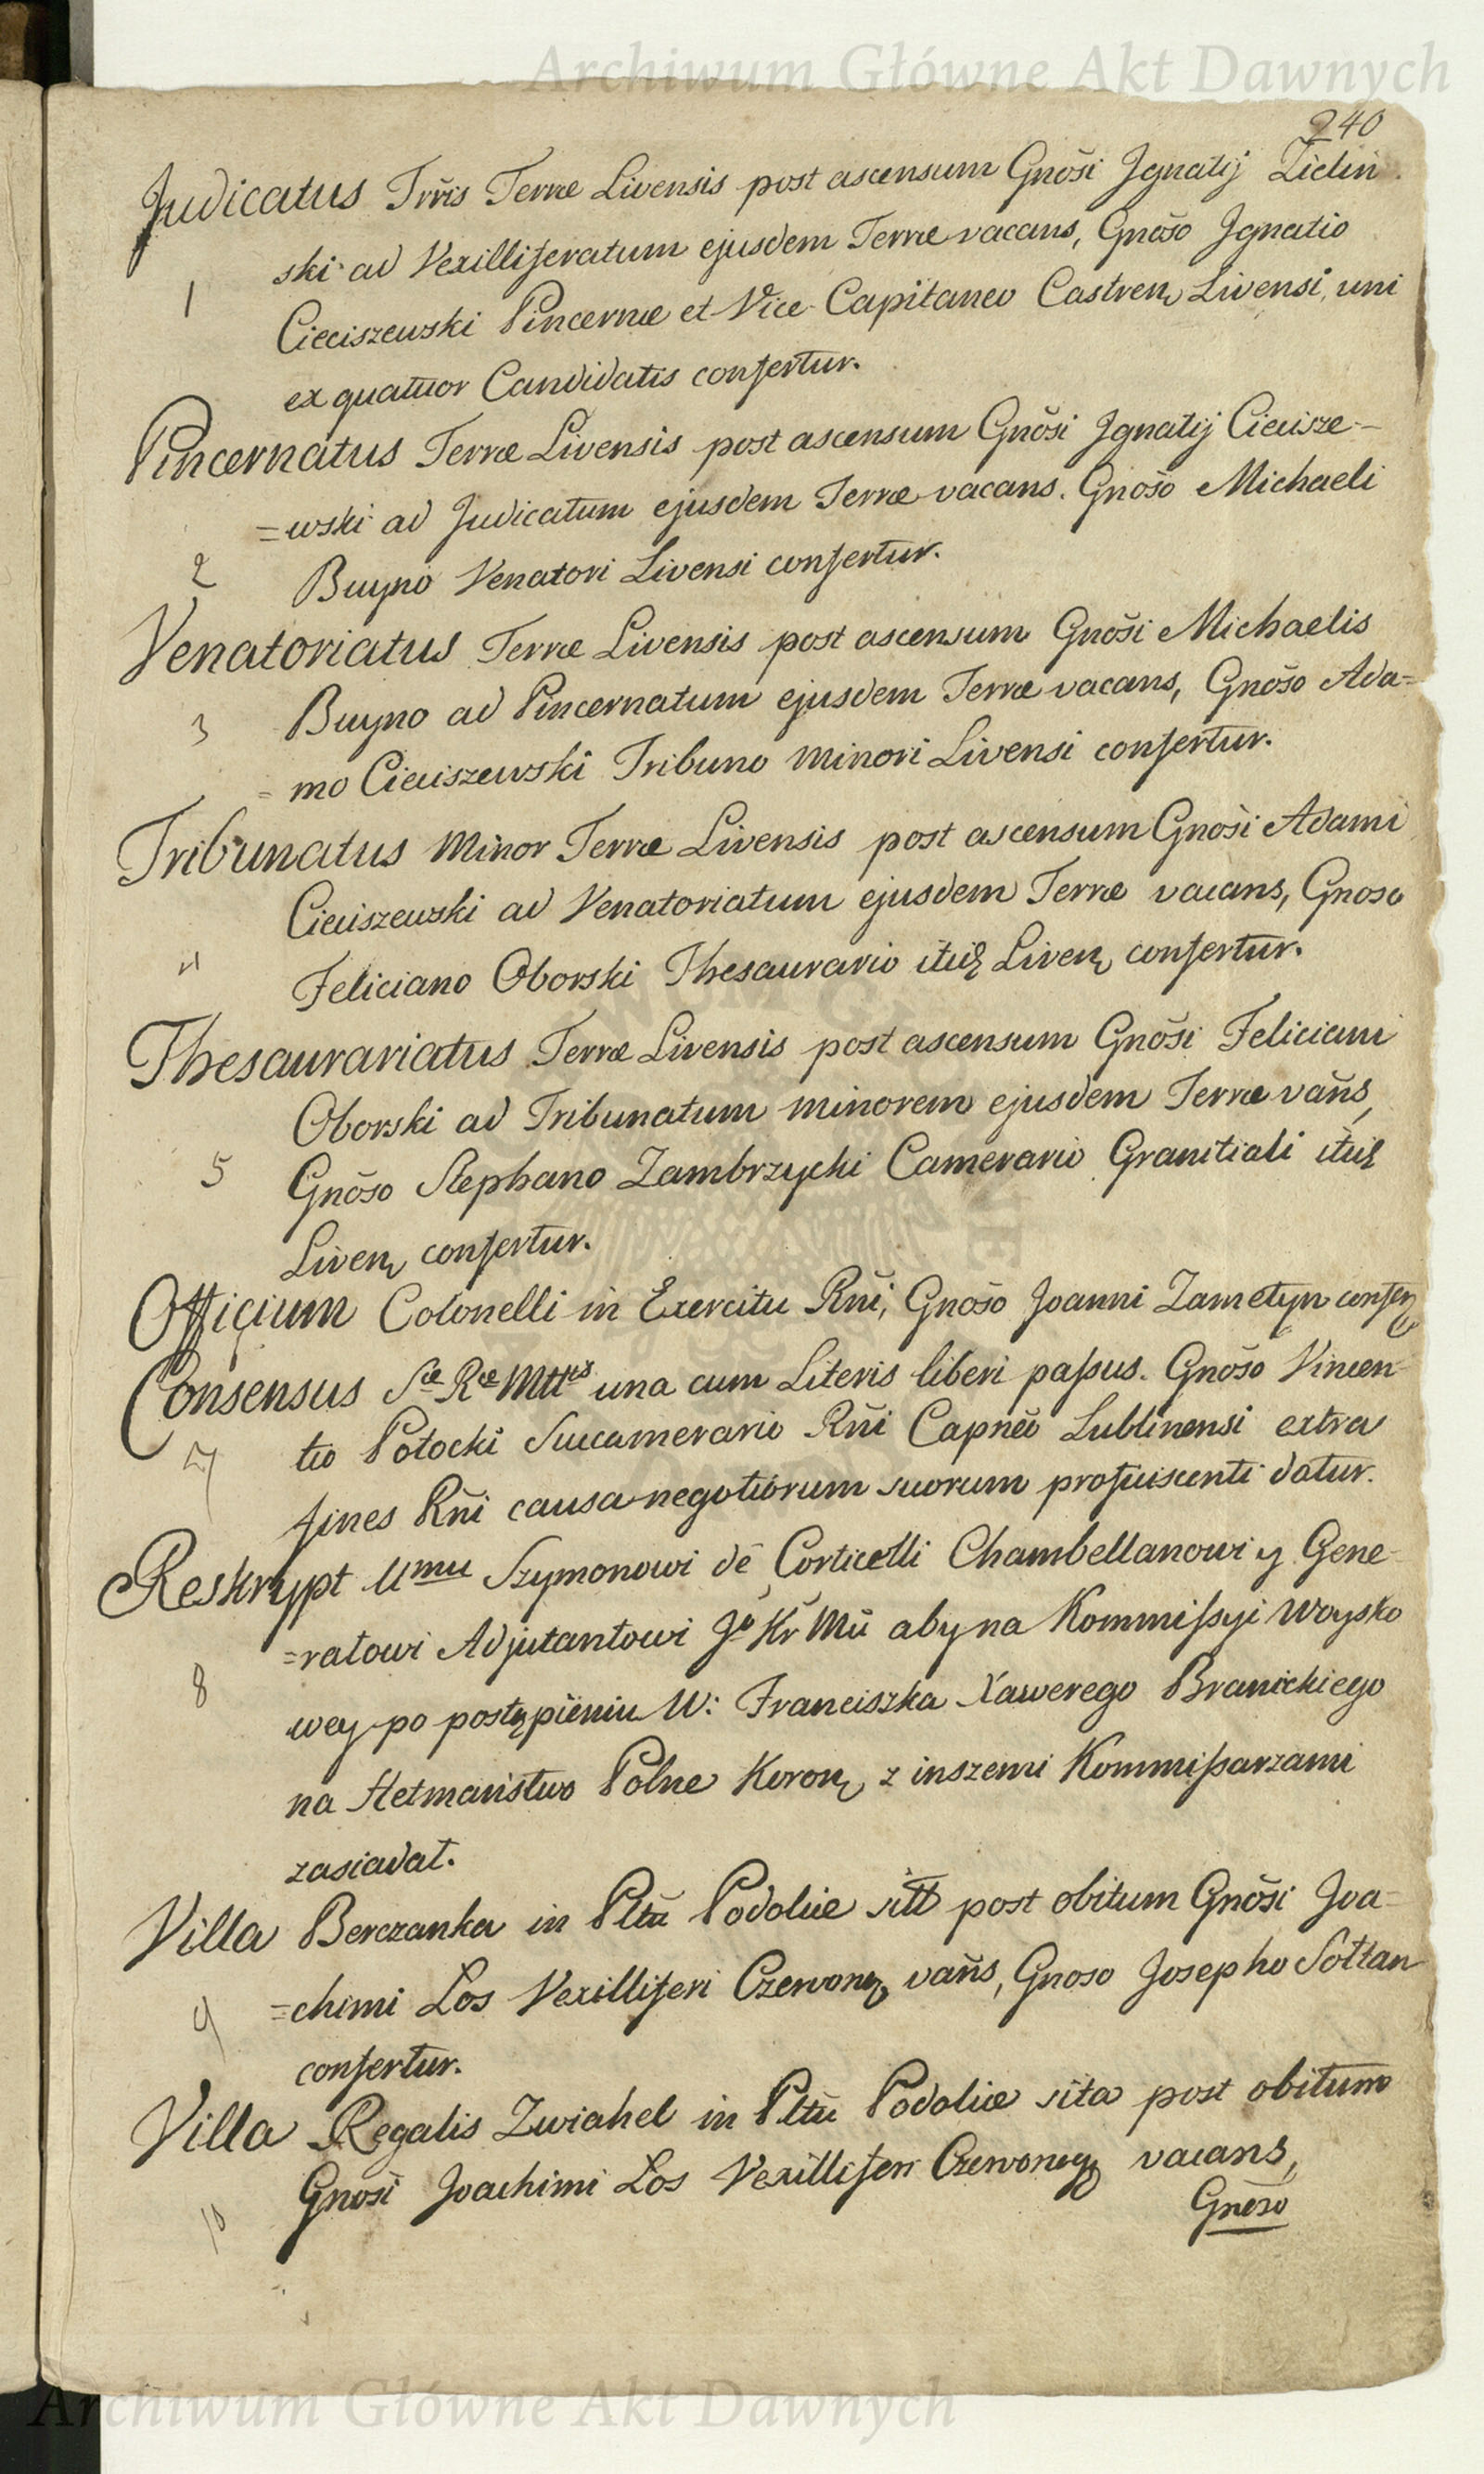 Archiwum Główne Akt Dawnych
240
Judicatus Trrīs Terræ Livensis post ascensum Gnōsi Jgnatij Zielin
ski ad Vexilliferatum ejusdem Terræ vacans, Gnōso Jgnatio
1
Cieciszewski Pincernæ et Vice-Capitaneo Castren Livensi, uni
ex quatuor Candidatis confertur.
Pincernatus Terræ Livensis post ascensum Gnōsi Jgnatij Ciecisze-
=wski ad Judicatum ejusdem Terræ vacans. Gnōso Michaeli
2
Buyno Venatori Livensi confertur.
Venatoriatus Terræ Livensis post ascensum Gnōsi Michaelis
Buyno ad Pincernatum ejusdem Terræ vacans, Gnōso Ada=
3
=mo Cieciszewski Tribuno minori Livensi confertur.
Tribunatus minor Terræ Livensis post ascensum Gnōsi Adami
Cieciszewski ad Venatoriatum ejusdem Terræ vacans, Gnoso
4
Feliciano Oborski Thesaurario itid Liven confertur.
Thesaurariatus Terræ Livensis post ascensum Gnōsi Feliciani
Oborski ad Tribunatum minorem ejusdem Terræ vañs,
5
Gnōso Stephano Zambrzycki Camerario Granitiali itid
Liven confertur.
Officium Colonelli in Exercitu Rñi, Gnōso Joanni Zametyn confer
Consensus Sæ Ræ Mttis una cum Literis liberi paſsus. Gnōso Vincen-
7
tio Potocki Succamerario Rñi Capneo Lublinensi extra
fines Rñi causa negotiorum suorum proficiscenti datur.
Reskrypt Umu Szymonowi de Corticelli Chambellanowi y Gene-
=rałowi Adjutantowi Jo Kr Mci aby na Kommiſsyi Woysko
8
wey po postąpieniu W: Franciszka Xawerego Branickiego
na Hetmaństwo Polne Koron z inszemi Kommiſsarzami
zasiadał.
Villa Berczanka in Pltū Podoliæ sitt post obitum Gnōsi Joa=
9
=chimi Łos Vexilliferi Czerwon vañs, Gnoso Josepho Sołtan
confertur.
Villa Regalis Zwiahel in Pltū Podoliæ sita post obitum
10
Gnosi Joachimi Łos Vexilliferi Czerwoneg vacans,
Gnōso
Archiwum Główne Akt Dawnych